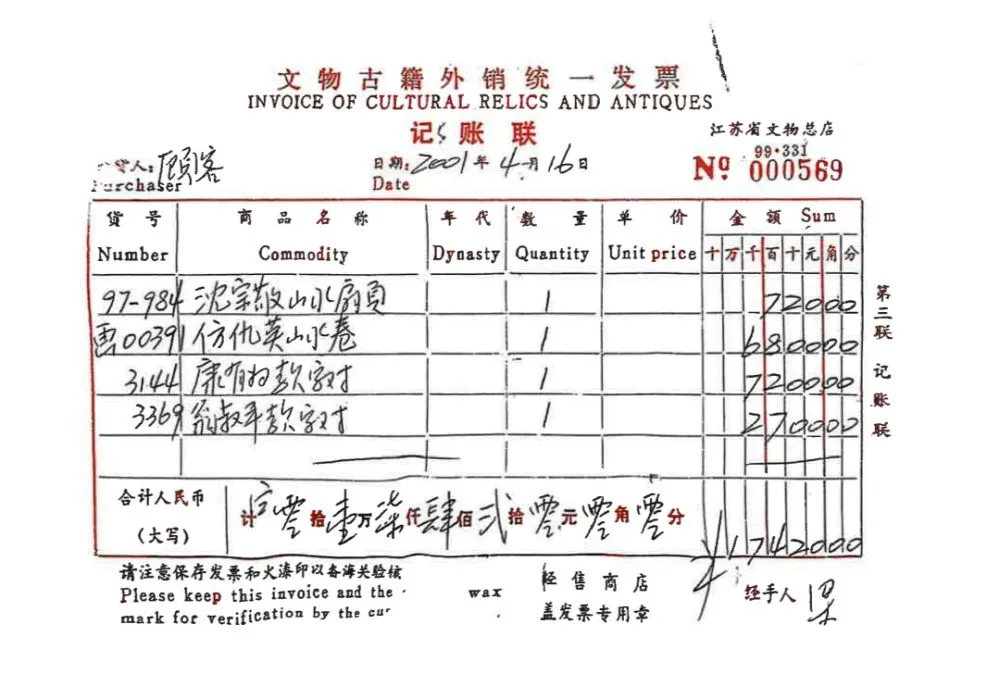 文物古籍外销统一发票
INVOICE OF CULTURAL RELICS AND ANTIQUES
记账联
江苏省文物总店
货人：顾客
日期：2001年4月16日
99·331
Purchaser
Date
Nº 000569
货号 商品名称 年代 数量 单价 金额 Sum
Number Commodity Dynasty Quantity Unit price 十万千百十元角分
97-984 沈宗敬山水扇頁 1 72000
画00391 仿仇英山水卷 1 680000
3144 康有为款字对 1 720000
3369 翁叔平款字对 1 270000
合计人民币
（大写）
计 零拾壹万柒仟肆佰贰拾零元零角零分
¥1742000
请注意保存发票和火漆印以备海关验核
Please keep this invoice and the wax
mark for verification by the cus
经售商店
盖发票专用章
经手人 梁
第三联 记账联